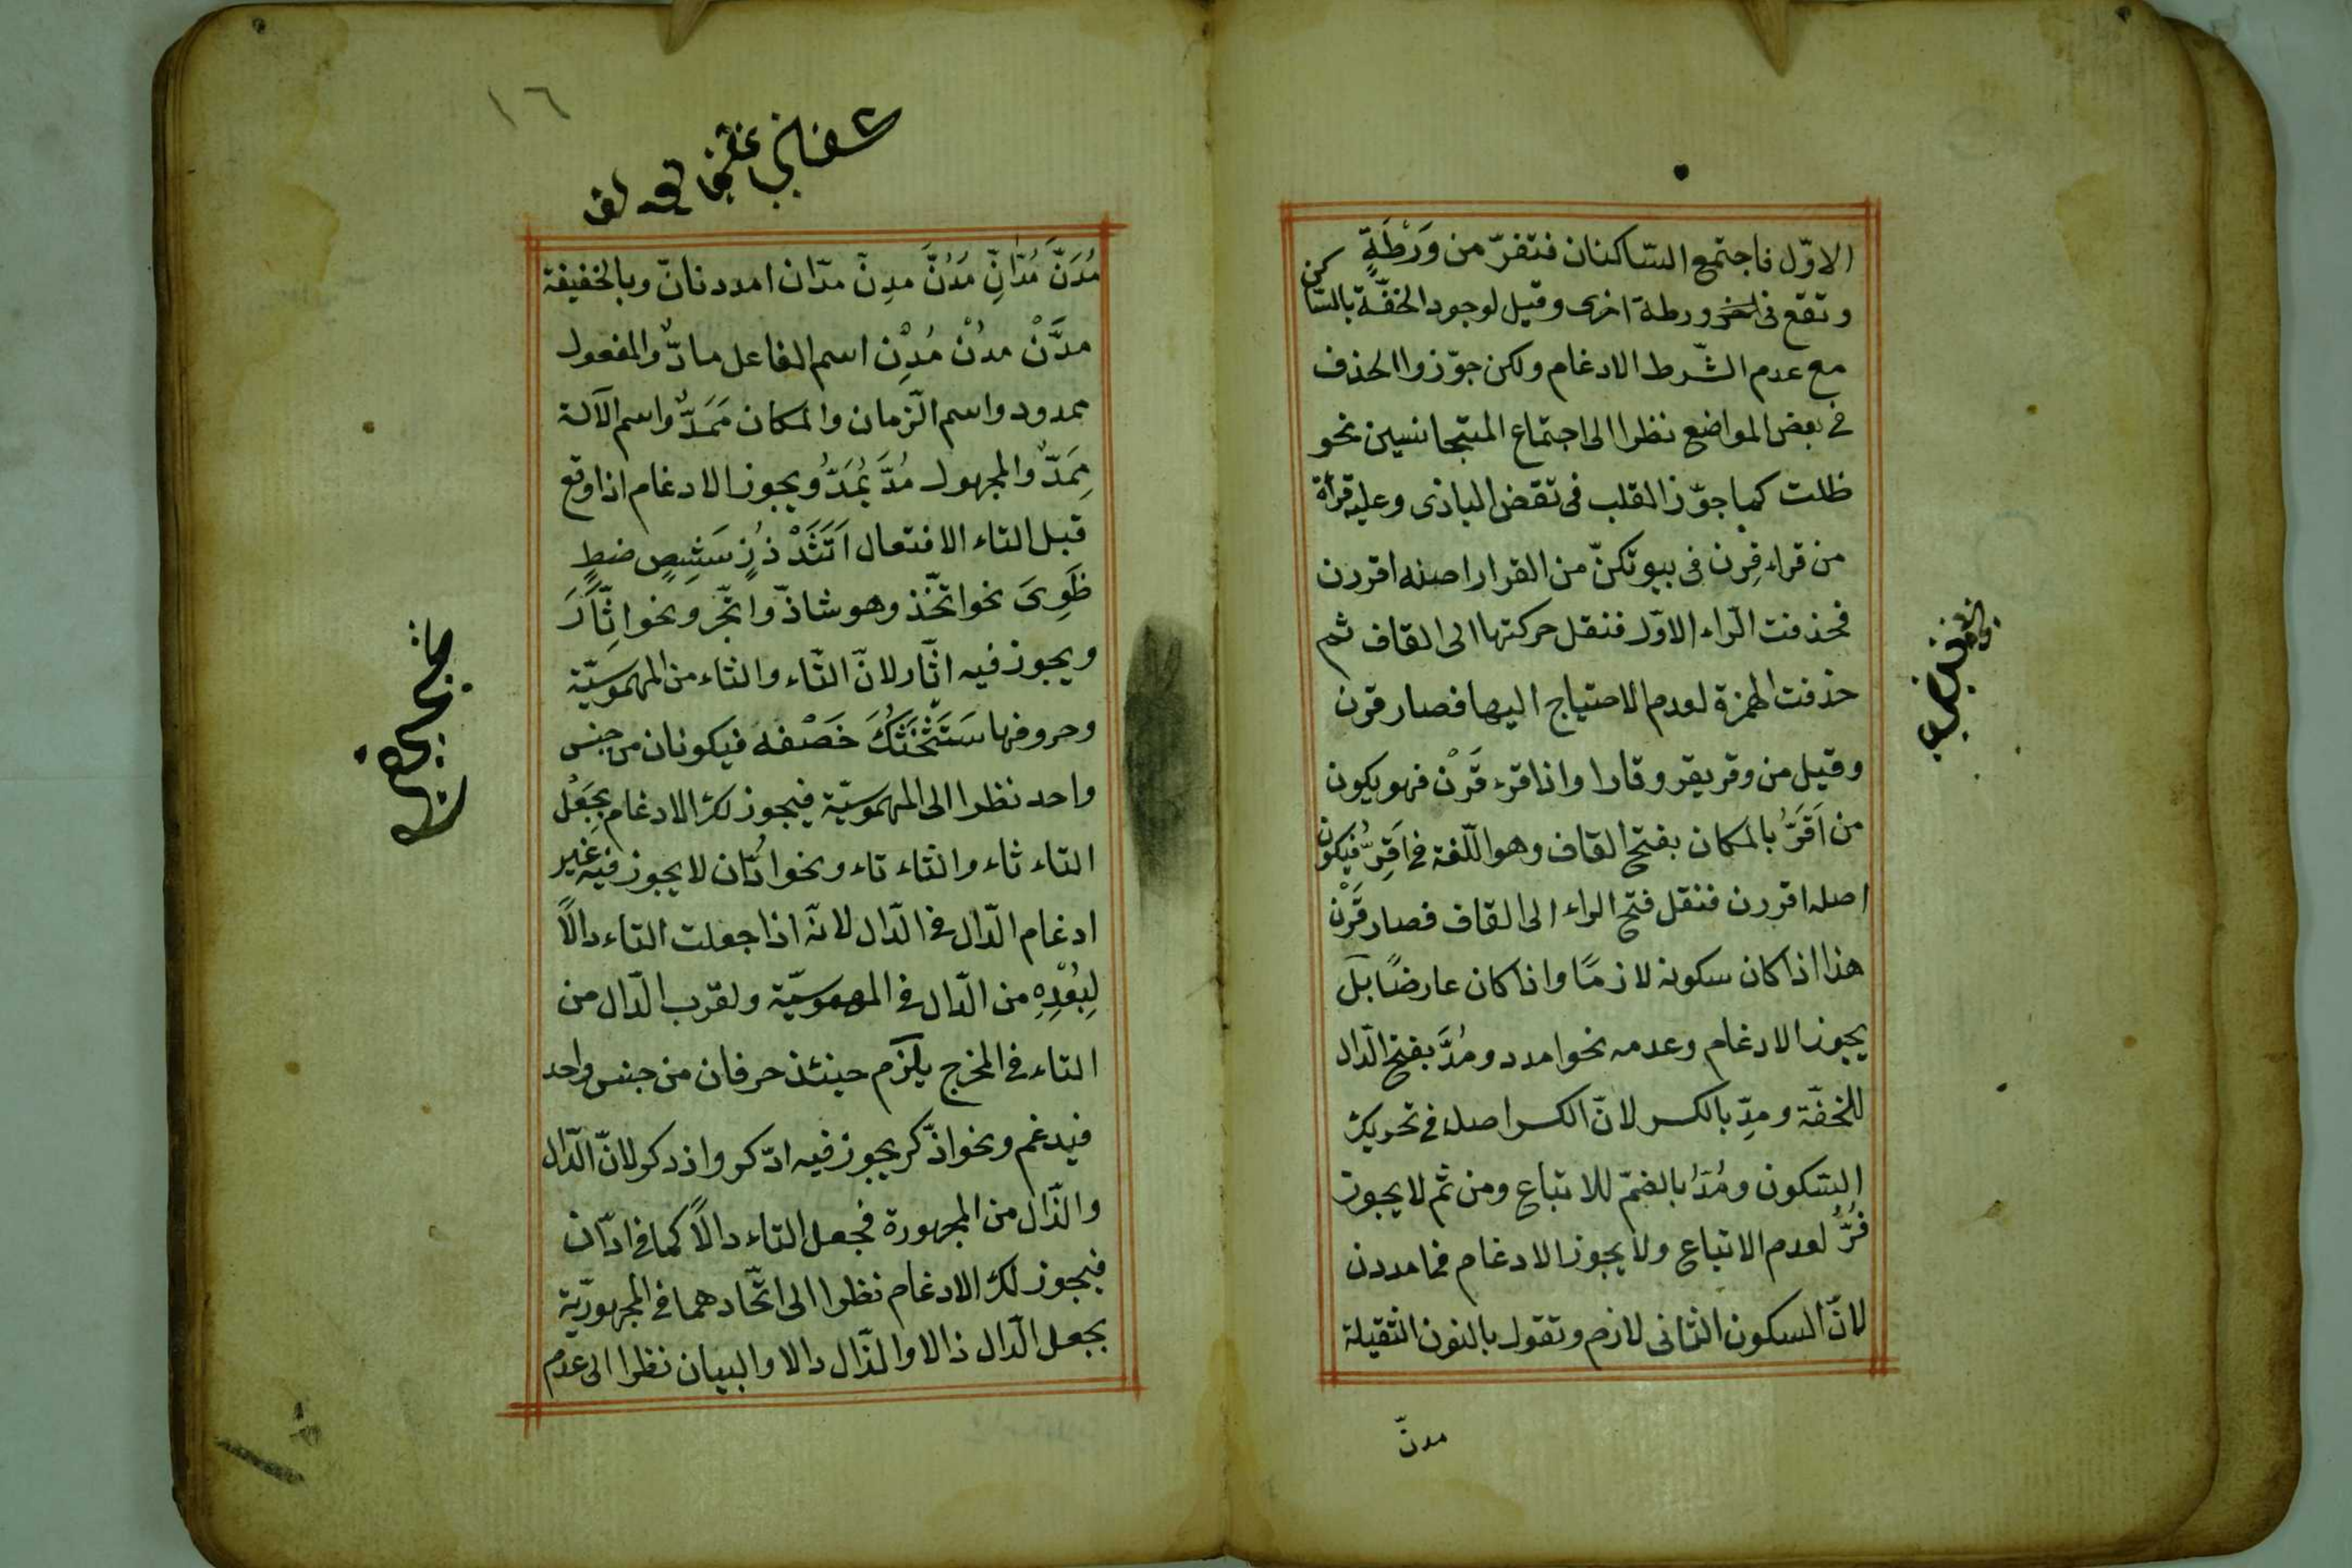 الاوّل فاجتمع السّاكنان فتفرّ من وَرْطَةٍ
وتقع فى ورطة اخرى وقيل لوجود الخفّة بالسّاكن
مع عدم الشّرط الادغام ولكن جوّزوا الحذف
فى بعض المواضع نظرا الى اجتماع المتجانسين نحو
ظلت كما جوّز القلب فى تقضى البازى وعليه قرأة
من قراء قِرْن فى بيوتكنّ من القرار اصله اقررن
فحذفت الرّاء الاوّل فنقل حركتها الى القاف ثم
حذفت الهمزة لعدم الاحتياج اليها فصار قرن
وقيل من وقر يقر وقارا واذا قرء قَرْن فهو يكون
من اَقَرُّ بالمكان بفتح القاف وهو اللّغة فى اَقِرُّ فيكون
اصله اقررن فنقل فتح الراء الى القاف فصار قَرْن
هذا اذا كان سكونه لازمًا واذا كان عارضًا بل
يجوز الادغام وعدمه نحو امدد ومُدَّ بفتح الدّال
للخفّة ومدِّ بالكسر لانّ الكسر اصل فى تحريك
السّكون ومُدُّ بالضمّ للاتباع ومن ثم لا يجوز
فُرُّ لعدم الاتباع ولا يجوز الادغام فى امددن
لانّ السكون الثانى لازم وتقول بالنون الثقيلة
مدنّ
١٦
مُدَنَّ مُدَّانِّ مُدُنَّ مدِنّ مدّان امددنانّ وبالخفيفة
مدَّنْ مدُنْ مُدِنْ اسم الفاعل مادٌّ والمفعول
ممدود واسم الزّمان والمكان مَمَدٌّ واسم الآلة
مِمَدٌّ والمجهول مُدَّ يُمَدُّ ويجوز الادغام اذا وقع
قبل التاء الافتعال اَتَثَدْ ذُزٍ سَشِصٍ ضطٍ
ظَوِىَ نحو اتّخذ وهو شاذّ واتّجر ونحو اثَّارَ
ويجوز فيه اتّار لانّ التّاء والثاء من المهموسيّة
وحروفها سَتَشْحَثُكَ خَصَفَه فيكونان من جنس
واحد نظرا الى المهموسيّة فيجوز لك الادغام بجَعْل
التاء ثاء والثاء تاء ونحو ادّان لا يجوز فيه غير
ادغام الدّال فى الدّال لانّه اذا جعلت التاء دالًا
لِبُعْدِهِ من الدّال فى المهموسيّة ولقرب الدّال من
التاء فى المخرج يلزم حينئذ حرفان من جنس واحد
فيدغم ونحو اذّكر يجوز فيه ادّكر واذدكر لانّ الدّال
والذّال من المجهورة فجعل التاء دالًا كما فى ادّان
فيجوز لك الادغام نظرا الى اتّحادهما فى المجهوريّة
بجعل الدّال ذالا والذّال دالا والبيان نظرا الى عدم